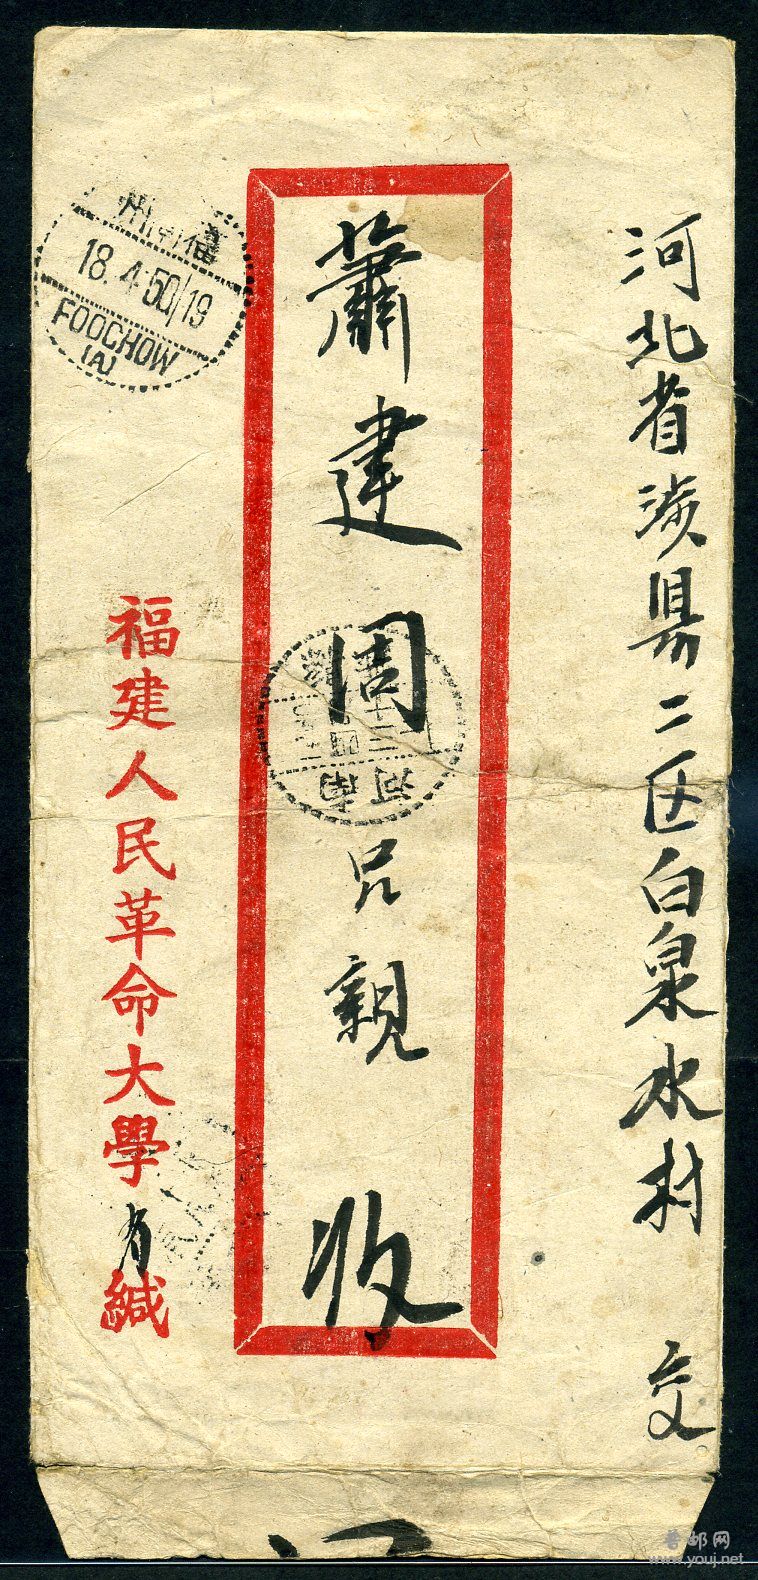 河北省涉县二区白泉水村 交
蕭建周兄親收
福建人民革命大學
緘
福州
18.4.50/19
FOOCHOW
(A)
河南
普邮网
www.youj.net